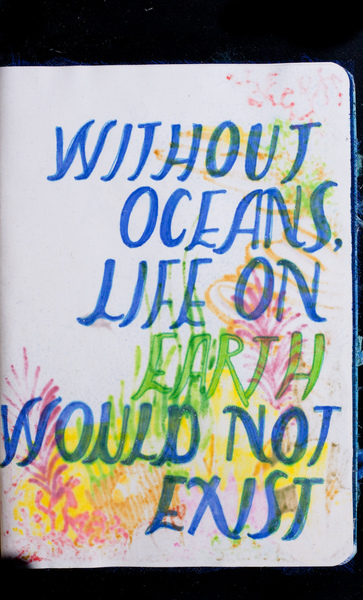 WITHOUT
OCEANS,
LIFE ON
EARTH
WOULD NOT
EXIST